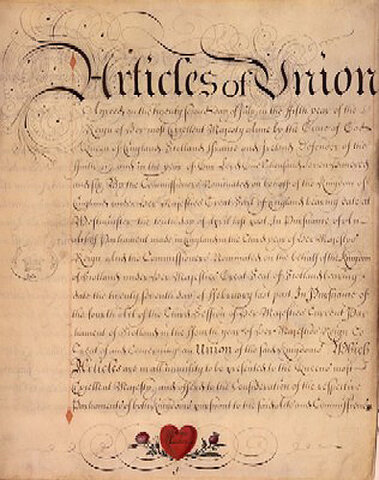 Articles of Union
Agreed on the twenty Second day of July in the fifth year of the
Reign of Her most Excellent Majesty Anne by the Grace of God
Queen of England Scotland France and Ireland Defender of the
Faith &c and in the year of our Lord One thousand Seven hundred
and Six By the Commissioners Nominated on behalf of the Kingdom of
England under Her Majesties Great Seal of England bearing date at
Westminster the tenth day of April last past In Pursuance of An
Act of Parliament made in England in the third year of Her Majesties
Reign and the Commissioners Nominated on the behalf of the Kingdom
of Scotland under Her Majesties Great Seal of Scotland bearing
date the twenty Seventh day of February last past In Pursuance of
the fourth Act of the third Session of Her Majesties Current Par
liament of Scotland in the fourth year of Her Majesties Reign to
Treat of and Concerning an Union of the said Kingdoms Which
Articles are in all humility to be presented to the Queens most
Excellent Majesty and offered to the Consideration of the respective
Parliaments of both Kingdoms pursuant to the said Acts and Commissions